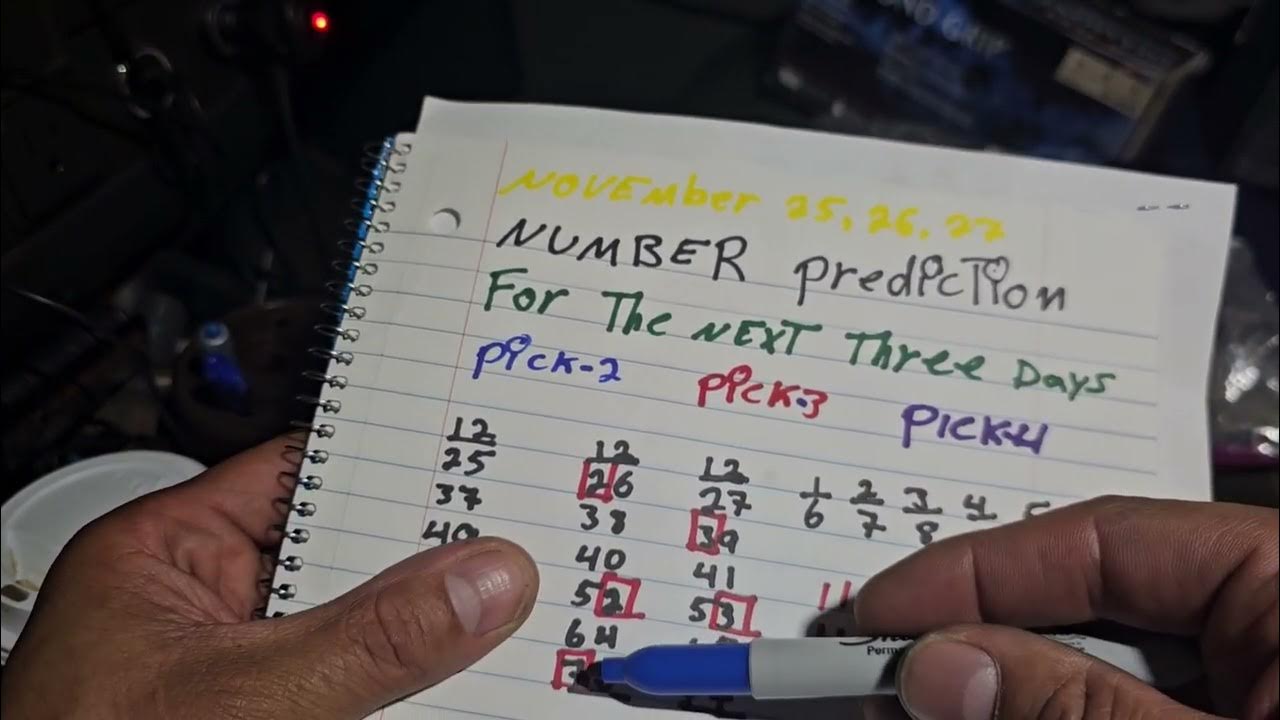 NOVEMber 25, 26, 27
NUMBER predicTion
For The NEXT Three Days
pick-2 pick-3 PICK-4
12 12 12
25 26 27 1 2 3 4
37 38 39 6 7 8
40 40 41
52 53
64
7
NO GRIP